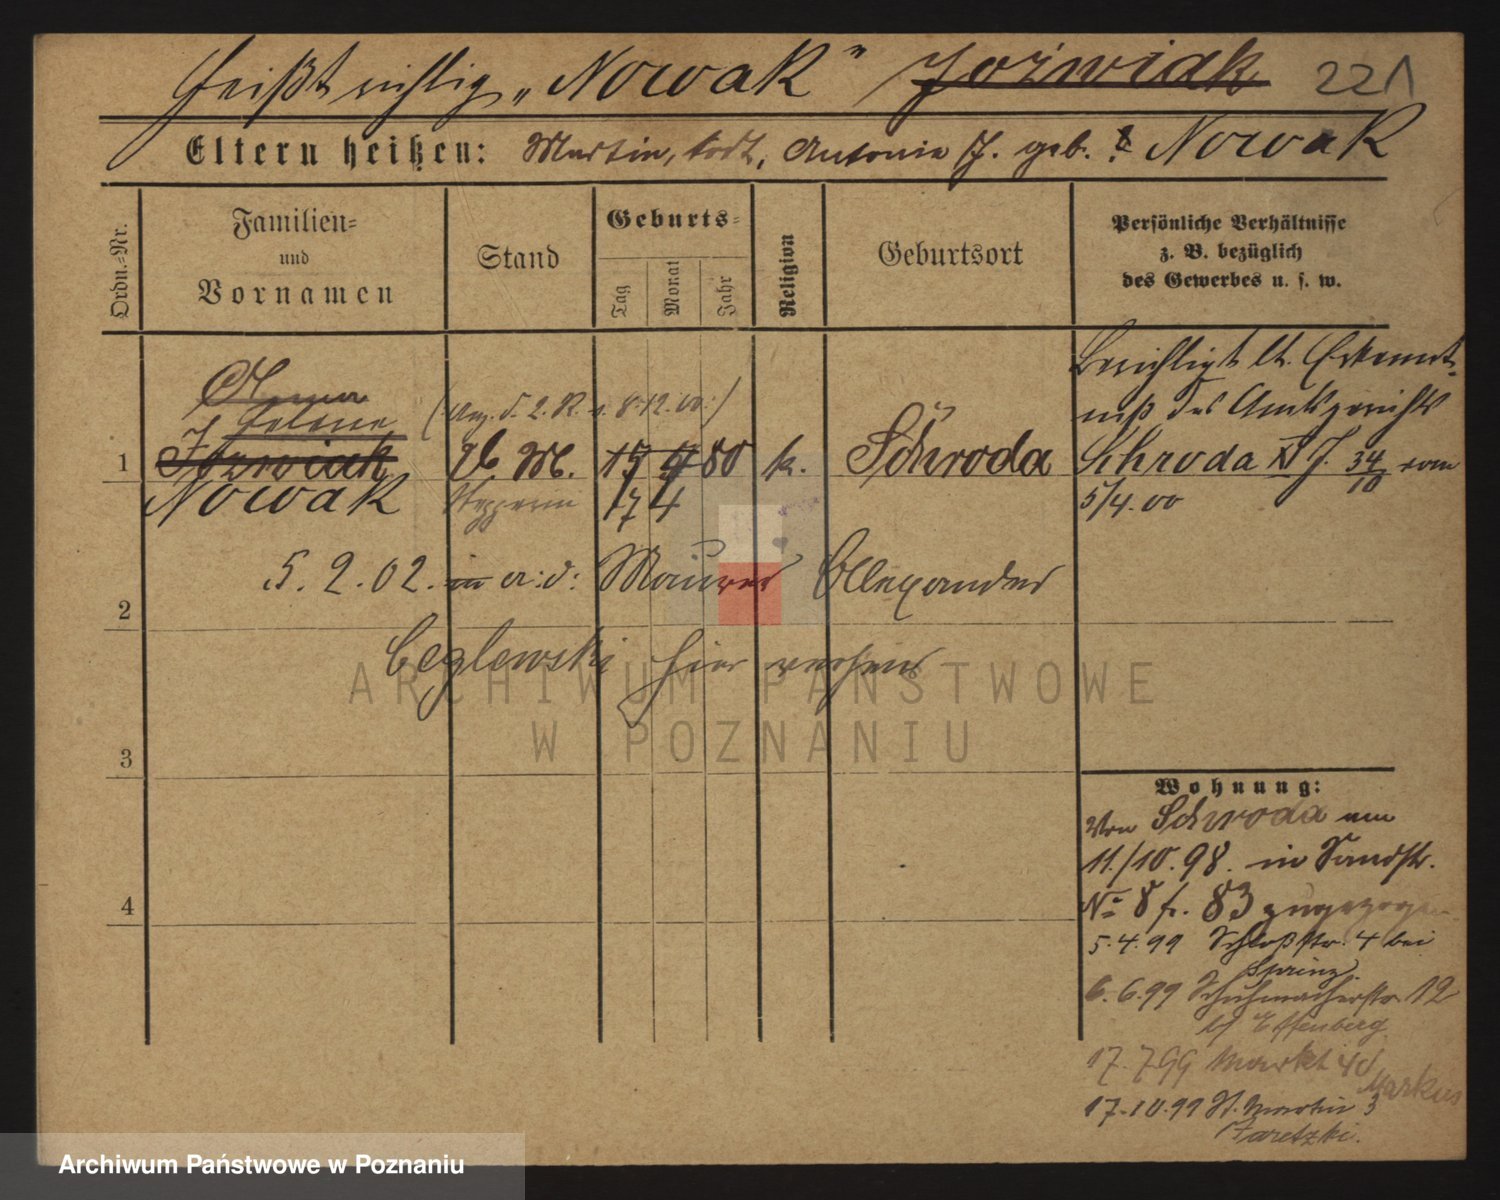 heißt richtig "Nowak" Joźwiak 221
Eltern heißen: Martin, todt, Antonie J. geb. Nowak
Ordn.-Nr.
Familien-
und
Vornamen
Stand
Geburts-
Tag
Monat
Jahr
Religion
Geburtsort
Persönliche Verhältnisse
z. B. bezüglich
des Gewerbes u. s. w.
Helene
1 Jozwiak M. 80 k. Schroda
Nowak 17 4
Berichtigt lt. Erkennt-
niß des Amtsgerichts
Schroda J. 34/10 vom
5/4.00
5.2.02. a.d. Maurer Alexander
2
Ceglewski hier
3
4
Wohnung:
Von Schroda am
11./10.98. in Sandstr.
No 8 fr. 83 zugezogen
5.4.99 Schloßstr. 4 bei
Sprinz.
6.6.99 Schuhmacherstr. 12
bei Effenberg
17.7.99 Markt 40 Markus
17.10.99 St. Martin 3
Zaretzki.
ARCHIWUM PAŃSTWOWE
W POZNANIU
Archiwum Państwowe w Poznaniu